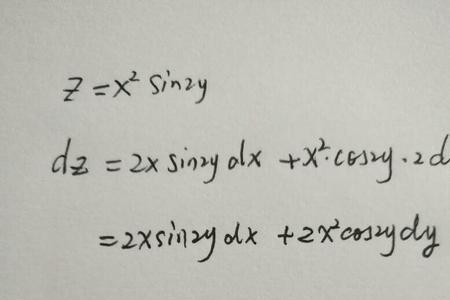 z = x² sin2y
dz = 2x sin2y dx + x²·cos2y·2d
= 2x sin2y dx + 2x²cos2y dy